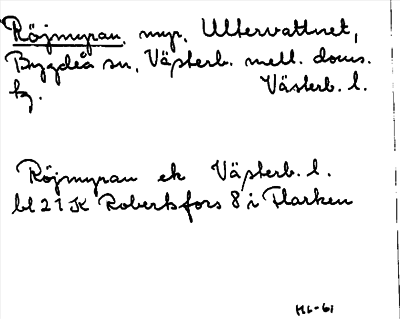 Röjmyran, myr, Ultervattnet,
Bygdeå sn, Västerb. mell. doms.
tg. Västerb. l.
Röjmyran ek Västerb. l.
bl 21 K Robertsfors 8 i Flarken
HL-61